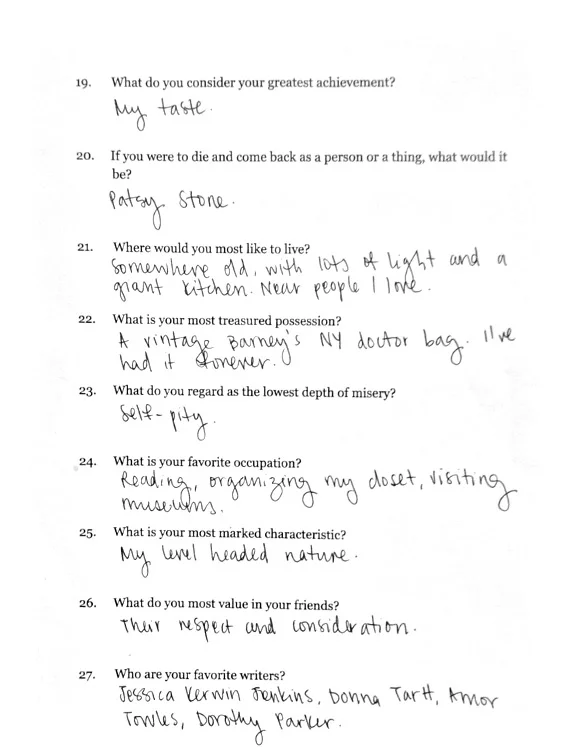 19. What do you consider your greatest achievement?
My taste.
20. If you were to die and come back as a person or a thing, what would it
be?
Patsy Stone.
21. Where would you most like to live?
Somewhere old, with lots of light and a
giant kitchen. Near people I love.
22. What is your most treasured possession?
A vintage Barney's NY doctor bag. I've
had it forever.
23. What do you regard as the lowest depth of misery?
Self-pity.
24. What is your favorite occupation?
Reading, organizing my closet, visiting
museums.
25. What is your most marked characteristic?
My level headed nature.
26. What do you most value in your friends?
Their respect and consideration.
27. Who are your favorite writers?
Jessica Kerwin Jenkins, Donna Tartt, Amor
Towles, Dorothy Parker.